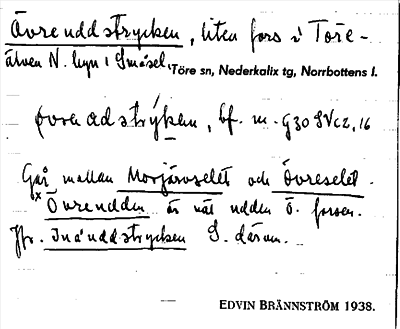 Övreuddstrycken, liten fors i Töre-
älven N. byn i Småsel.
Töre sn, Nederkalix tg, Norrbottens l.
bf. m. G30
Går mellan Morjärvselet och Övreselet.
x Övreudden är näs udden Ö. forsen.
Jfr. Inåuddstrycken S. därom.
EDVIN BRÄNNSTRÖM 1938.